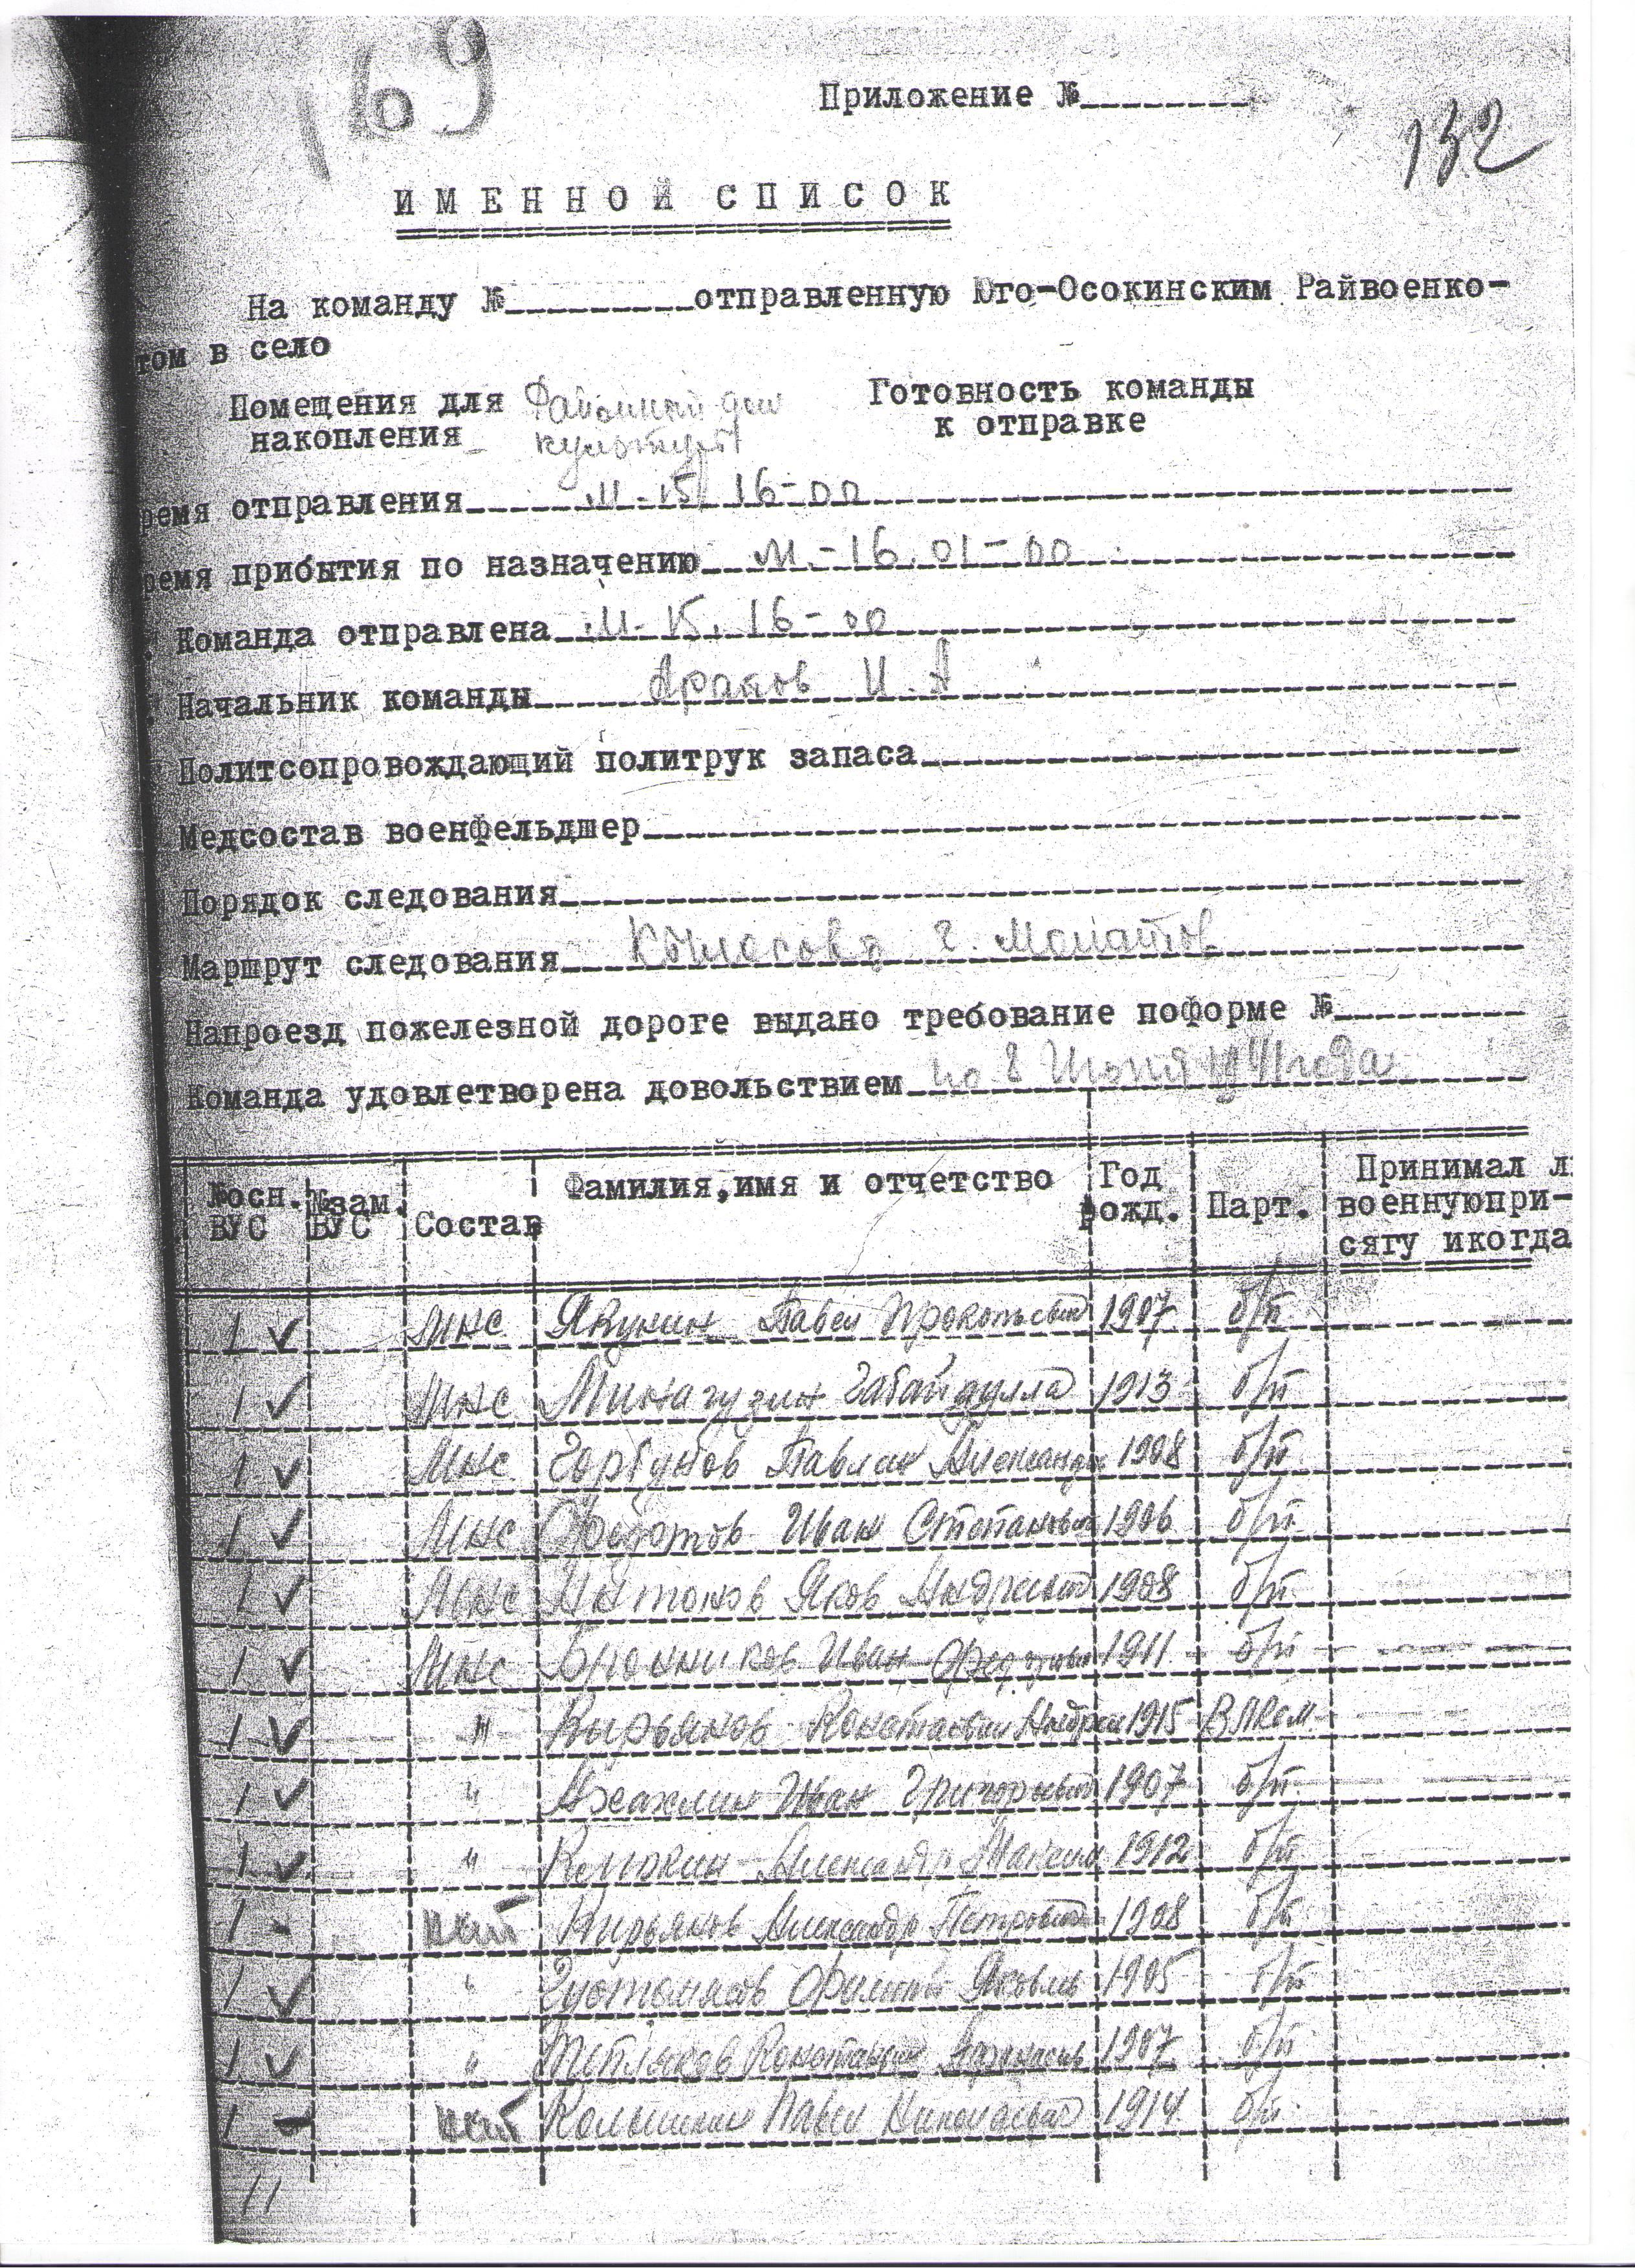 169
Приложение №
132
ИМЕННОЙ СПИСОК
На команду № отправленную Юго-Осокинским Райвоенко-
том в село
Помещения для Районный дом Готовность команды
накопления культуры к отправке
ремя отправления М-15. 16-00
ремя прибытия по назначению М-16. 01-00
Команда отправлена М-15. 16-00
Начальник команды Арапов И. А
Политсопровождающий политрук запаса
Медсостав военфельдшер
Порядок следования
Маршрут следования г.
Напроезд пожелезной дороге выдано требование поформе №
Команда удовлетворена довольствием по 8 1941 года
№осн. ВУС №зам. ВУС Состав Фамилия,имя и отчетство Год рожд. Парт. Принимал л военнуюпри- сягу икогда
1 МНС Якунин Павел Прокопьевич 1907 б/п
1 МНС Минагузин Габайдулла 1913 б/п
1 МНС Горбунов Павлин Александр 1908 б/п
1 МНС Федотов Иван Степанович 1906 б/п
1 МНС Антонов Яков Андреевич 1908 б/п
1 МНС Иван 1911 б/п
1 " Кирьянов Константин Андрее 1915 ВЛКСМ
1 " Иван Григорьевич 1907 б/п
1 " Александр 1912 б/п
1 Кирьянов Александр Петрович 1908 б/п
1 " Яковль 1905 б/п
1 " Константин 1907 б/п
1 Павел Николаевич 1914 б/п
11